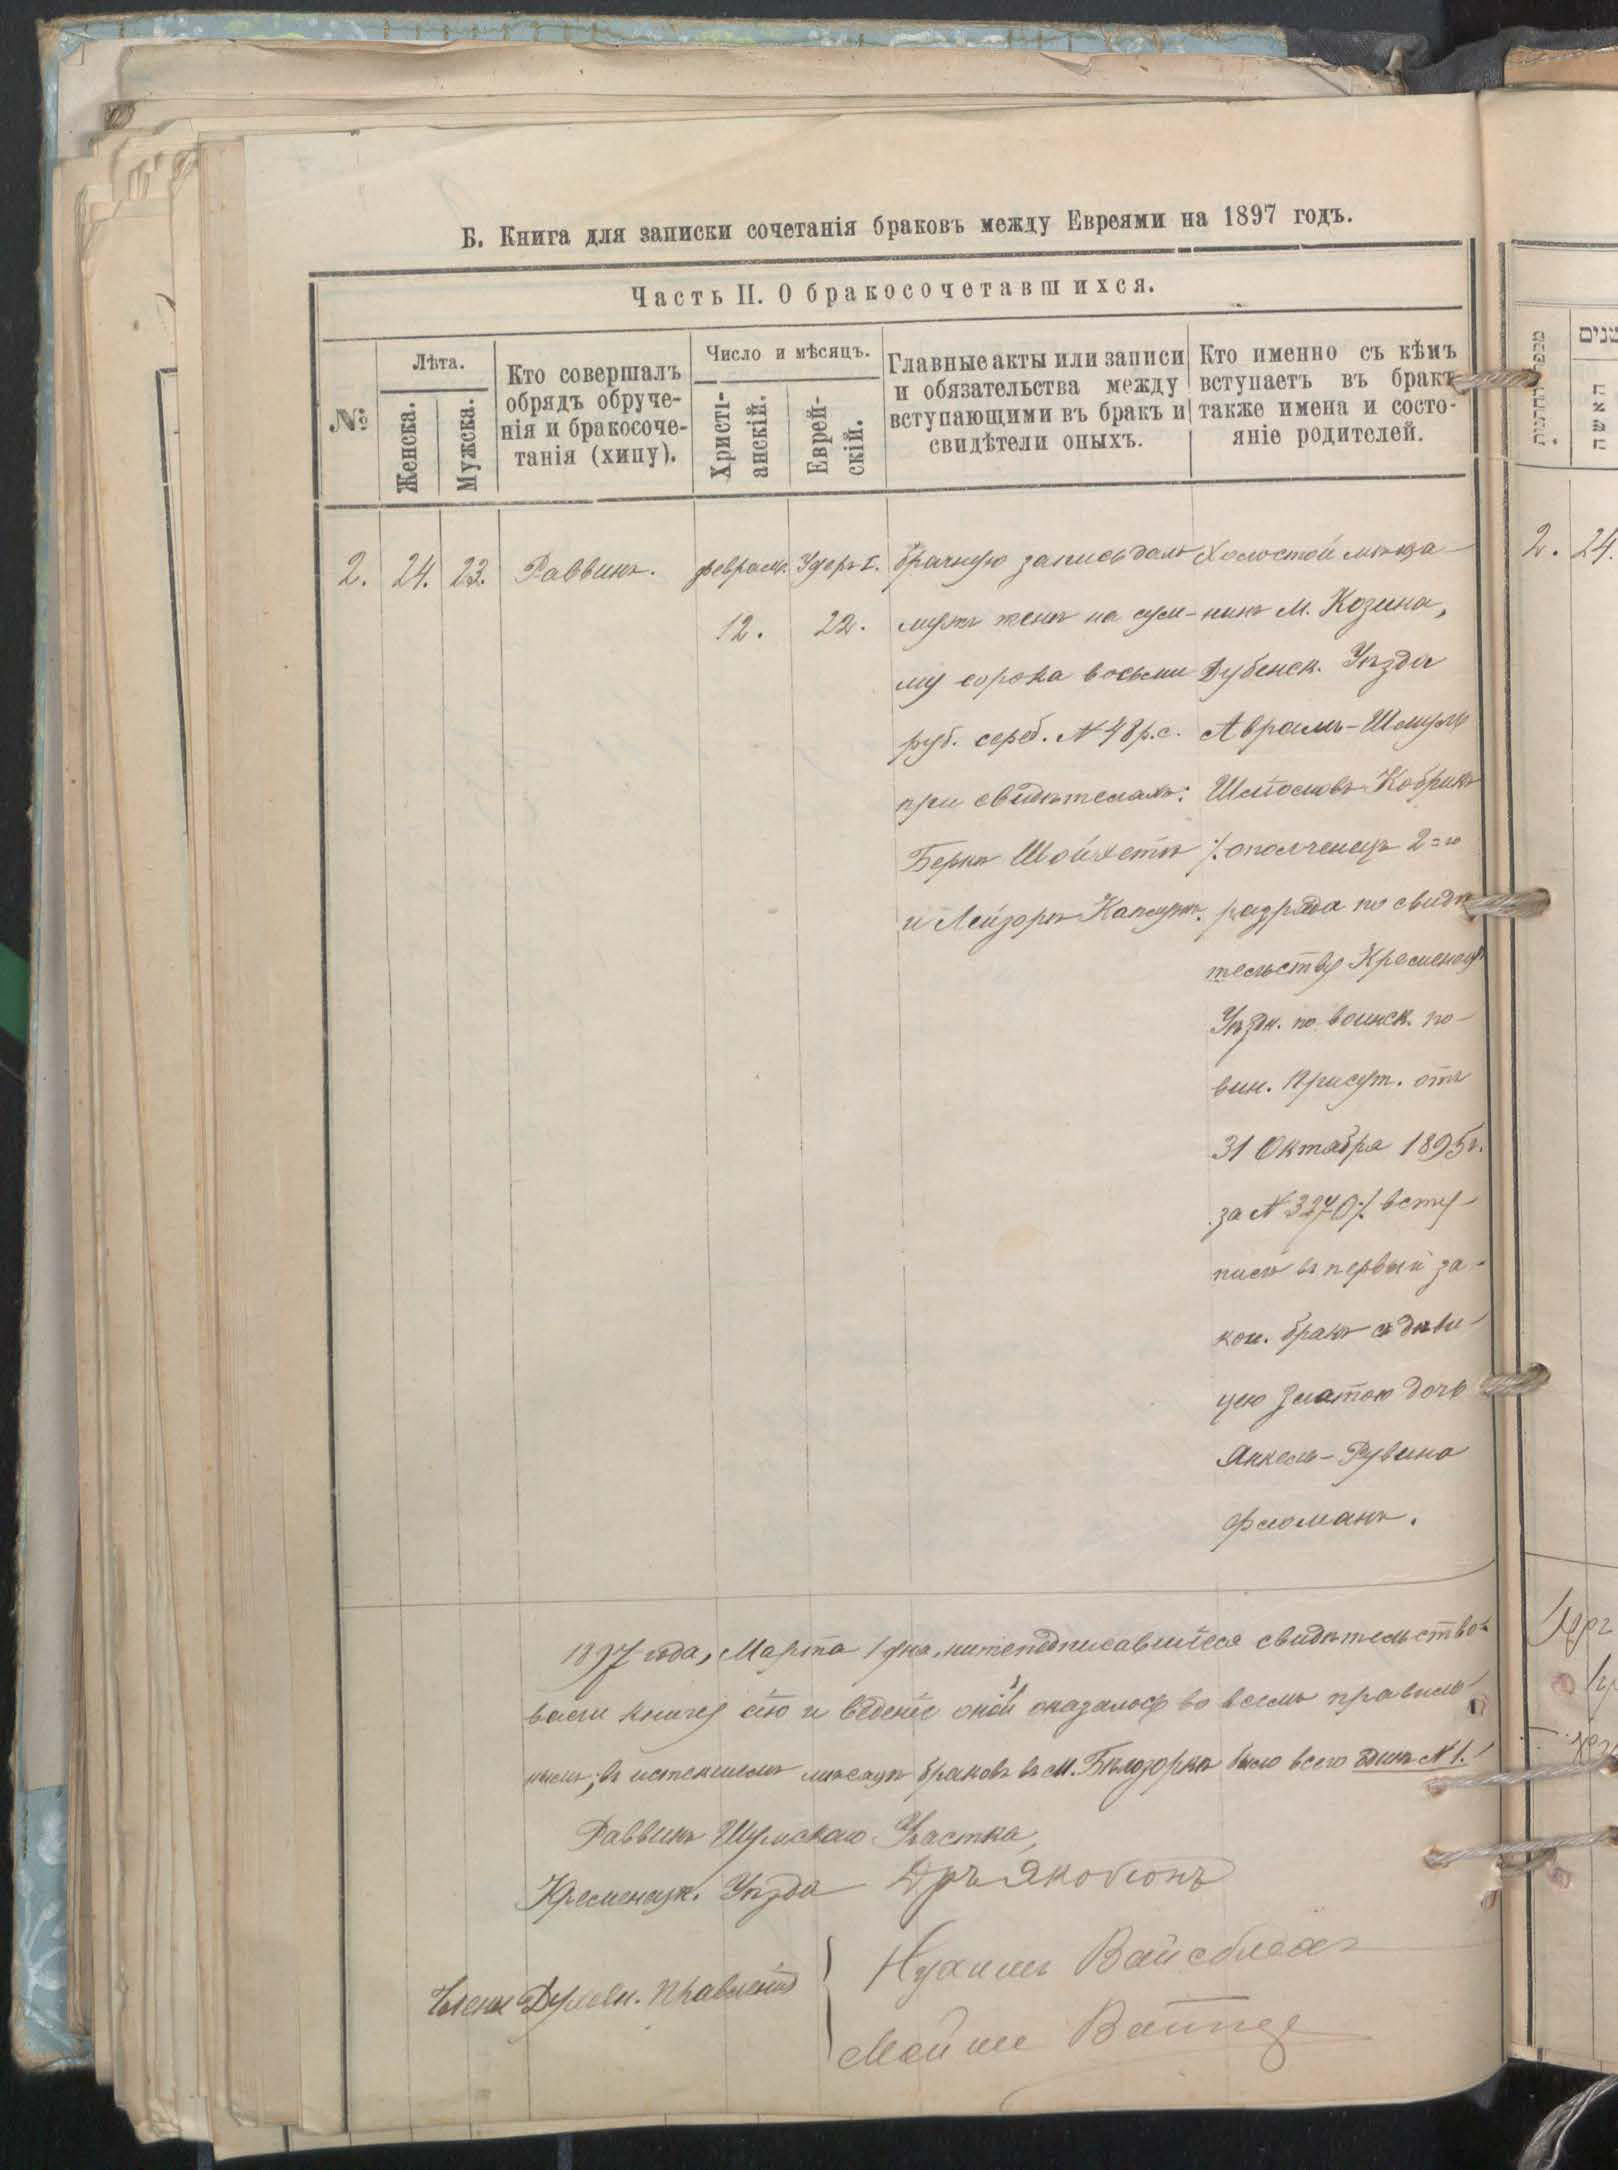 Б. Книга для записки сочетанія браковъ между Евреями на 1897 годъ.
Часть II. О бракосочетавшихся.
№
Лѣта.
Женска.
Мужска.
Кто совершалъ
обрядъ обруче-
нія и бракосоче-
танія (хипу).
Число и мѣсяцъ.
Христі-
анскій.
Еврей-
скій.
Главные акты или записи
и обязательства между
вступающими въ бракъ и
свидѣтели оныхъ.
Кто именно съ кѣмъ
вступаетъ въ бракъ
также имена и состо-
яніе родителей.
2.
24.
23.
Раввинъ.
Февраль.
12.
Удеръ I.
22.
брачную запись далъ
мужъ женѣ на сум-
му сорока восьми
руб. сереб. № 48 р. с.
при свидѣтеляхъ:
Беркъ Шойхетъ
и Лейзоръ
Холостой мѣща-
нинъ м. Козина,
Дубенск. Уѣзда
Аврамъ-Шмуль
Кобрикъ
/. ополченецъ 2=го
разряда по свидѣ
тельству Кременец
Уѣздн. по воинск. по-
вин. присут. отъ
31 Октября 1895 г.
за № 3270 /. всту-
пилъ въ первый за-
кон. бракъ съ дѣви-
цею Златою дочь
Янкель-Рувина
Фломанъ.
1897 года, Марта 1 дня, нижеподписавшіеся свидѣтельство-
вали книгу сію и веденіе оной оказалось во всемъ правиль
нымъ; въ истекшемъ мѣсяцѣ браковъ въ м. Бѣлозоркѣ было всего одинъ № 1.
Раввинъ Шумскаго Участка,
Кременецк. Уѣзда Дръ Якобсонъ
Члены Духовн. Правленія
Нухимъ Вайсблатъ
Мойше
2.
24.
שנים
האשה